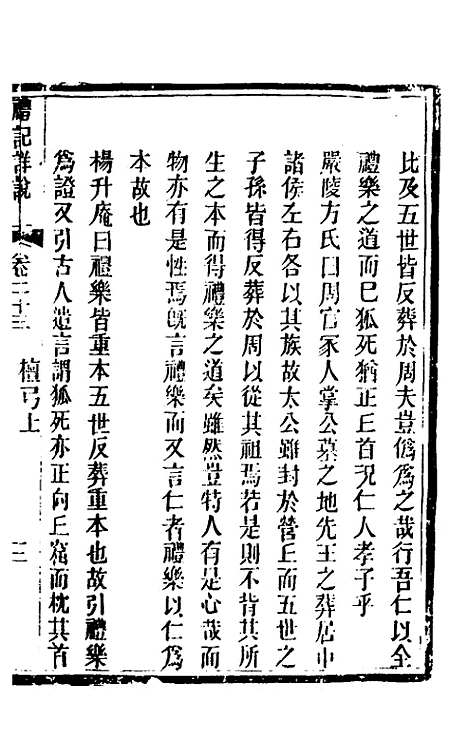 比及五世皆反葬於周夫豈僞爲之哉行吾仁以全
禮樂之道而已狐死猶正丘首況仁人孝子乎
嚴陵方氏曰周官冢人掌公墓之地先王之葬居中
諸侯左右各以其族故太公雖封於營丘而五世之
子孫皆得反葬於周以從其祖焉若是則不背其所
生之本而得禮樂之道矣雖然豈特人有是心哉而
物亦有是性焉旣言禮樂而又言仁者禮樂以仁爲
本故也
楊升庵曰禮樂皆重本五世反葬重本也故引禮樂
爲證又引古人遺言謂狐死亦正向丘窟而枕其首
禮記詳說 卷二十三 檀弓上 三